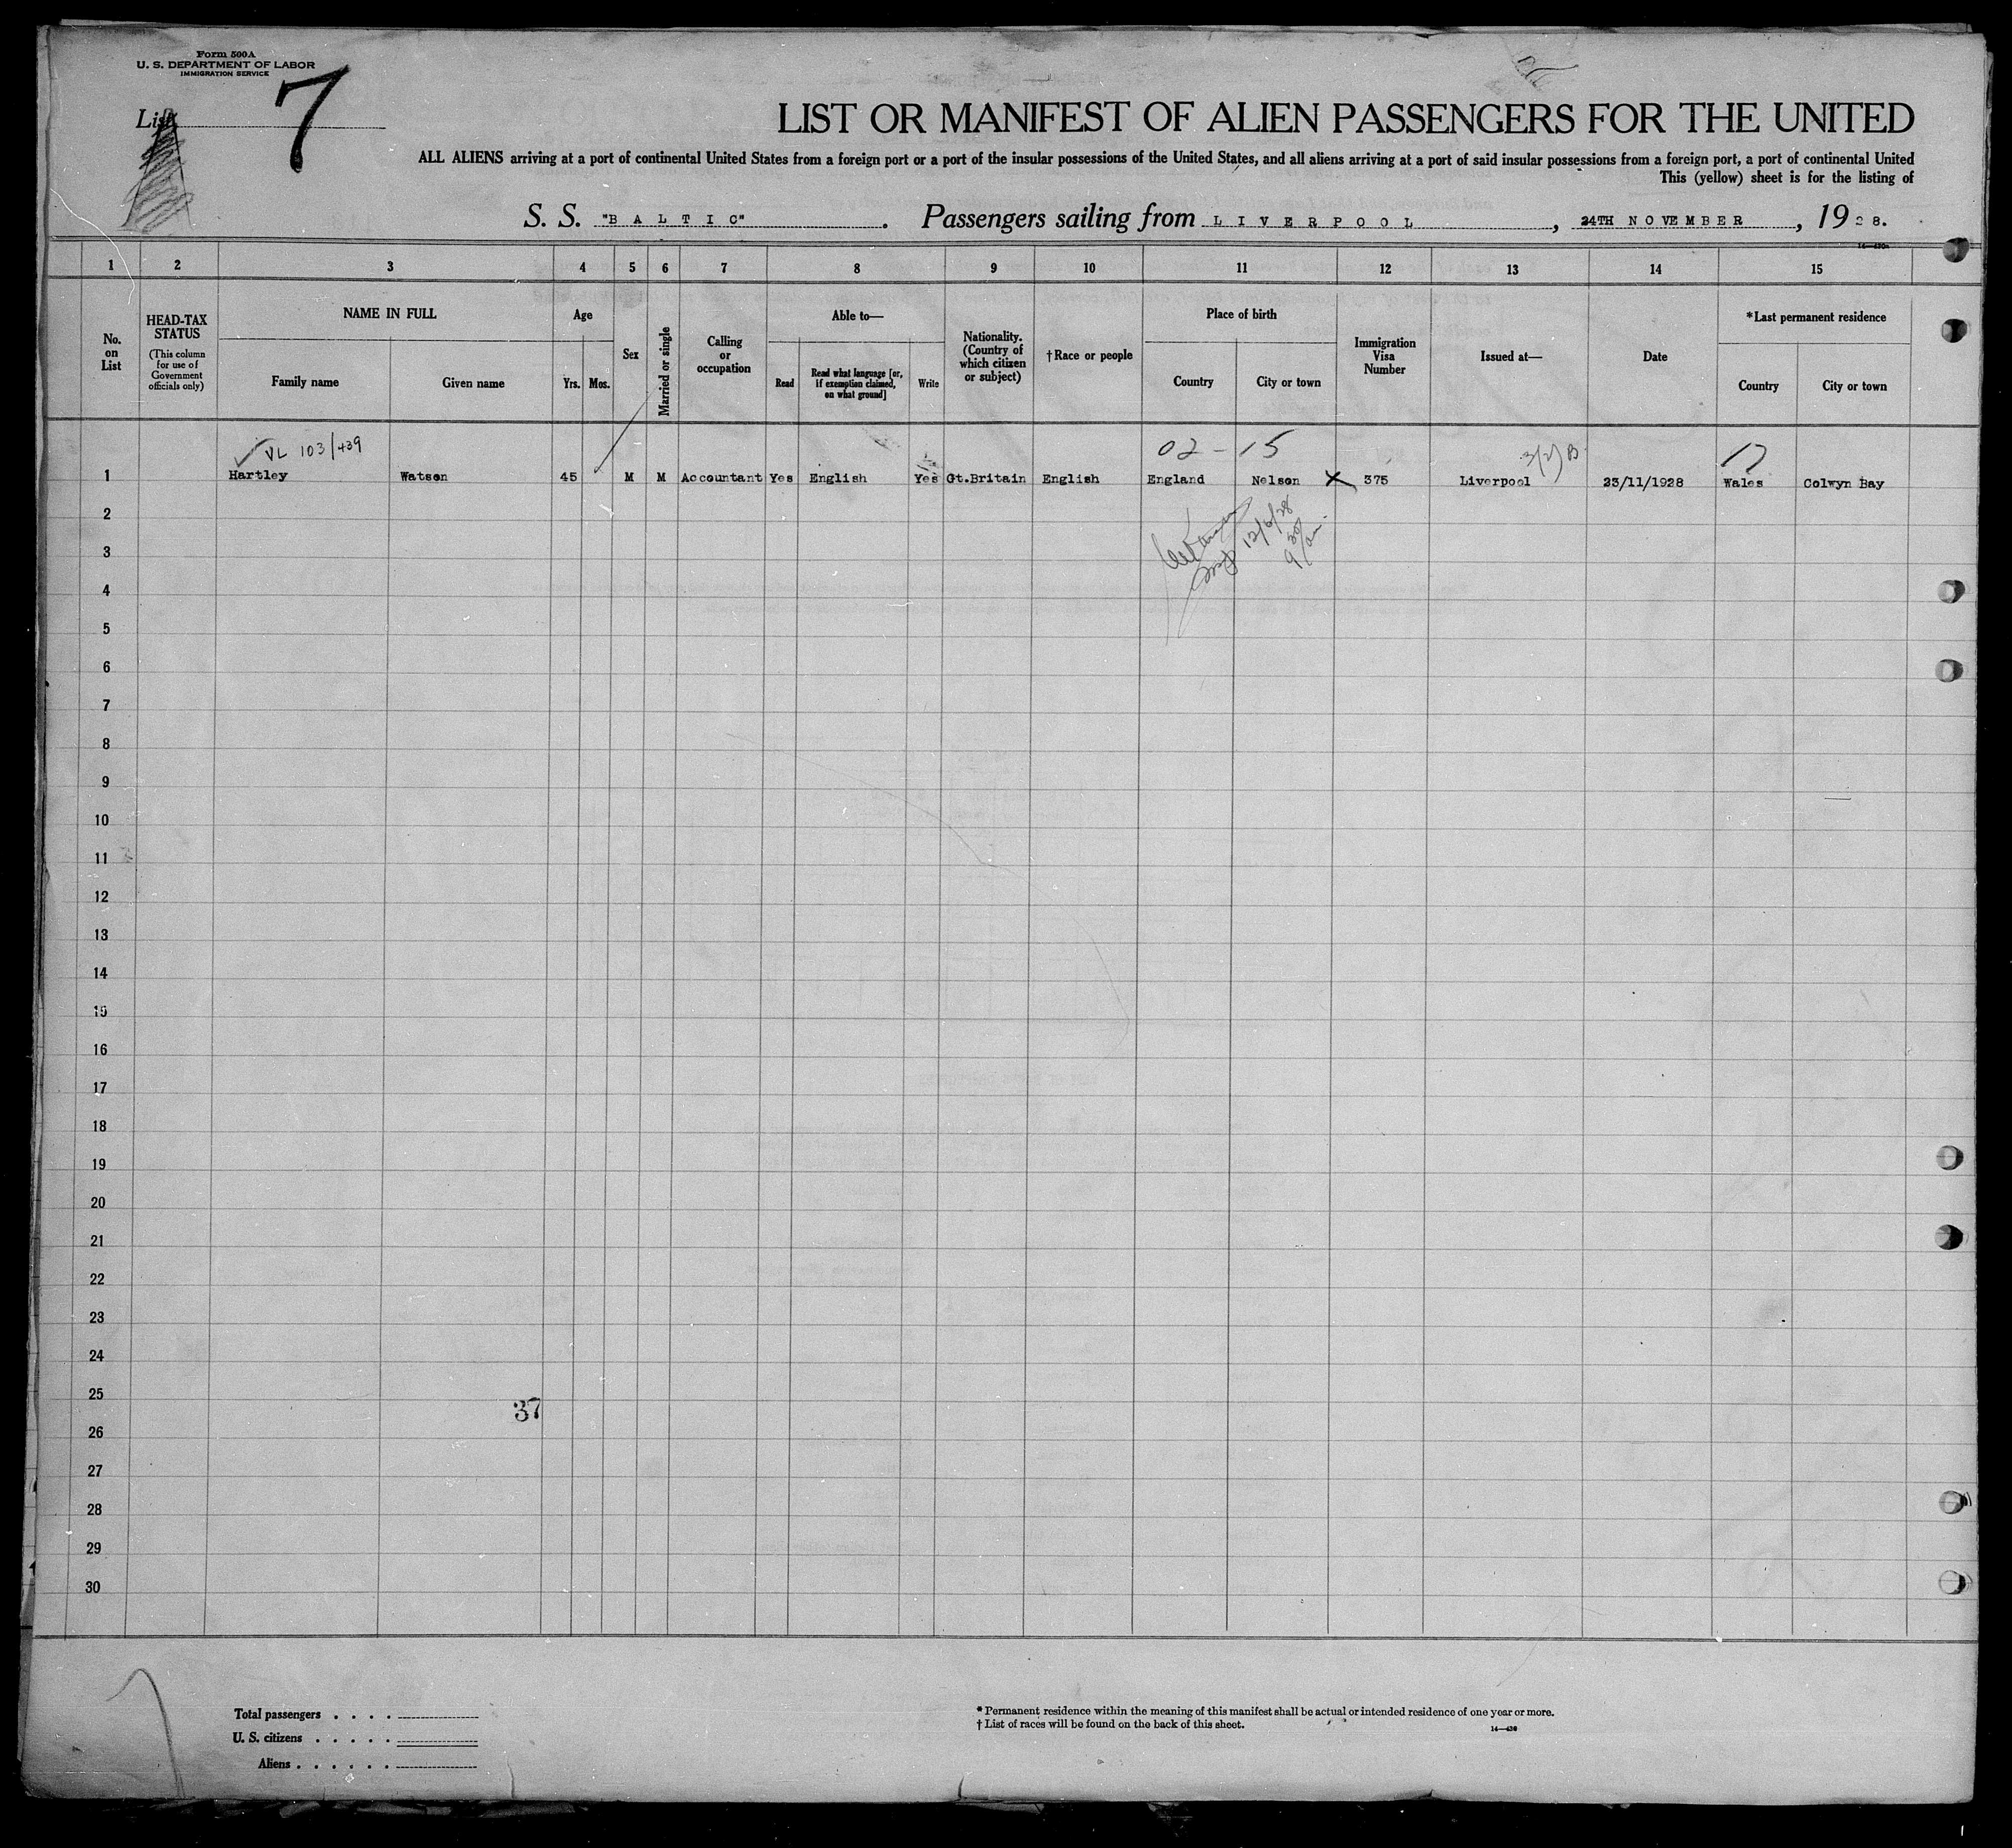 Form 500A
U. S. DEPARTMENT OF LABOR
IMMIGRATION SERVICE
List 7
LIST OR MANIFEST OF ALIEN PASSENGERS FOR THE UNITED
ALL ALIENS arriving at a port of continental United States from a foreign port or a port of the insular possessions of the United States, and all aliens arriving at a port of said insular possessions from a foreign port, a port of continental United
This (yellow) sheet is for the listing of
S. S. "BALTIC". Passengers sailing from LIVERPOOL, 24TH NOVEMBER, 1928.
1 2 3 4 5 6 7 8 9 10 11 12 13 14 15
No. on List
HEAD-TAX STATUS
(This column for use of Government officials only)
NAME IN FULL
Family name
Given name
Age
Yrs. Mos.
Sex
Married or single
Calling or occupation
Able to—
Read
Read what language [or, if exemption claimed, on what ground]
Write
Nationality. (Country of which citizen or subject)
†Race or people
Place of birth
Country
City or town
Immigration Visa Number
Issued at—
Date
*Last permanent residence
Country
City or town
VL 103/439
02 - 15
17
1 Hartley Watson 45 M M Accountant Yes English Yes Gt.Britain English England Nelson X 375 Liverpool 23/11/1928 Wales Colwyn Bay
2
12/6/28
3
9 30 am.
4
5
6
7
8
9
10
11
12
13
14
15
16
17
18
19
20
21
22
23
24
25
37
26
27
28
29
30
Total passengers . . . .
U. S. citizens . . . . .
Aliens . . . . . .
* Permanent residence within the meaning of this manifest shall be actual or intended residence of one year or more.
† List of races will be found on the back of this sheet.
14—430